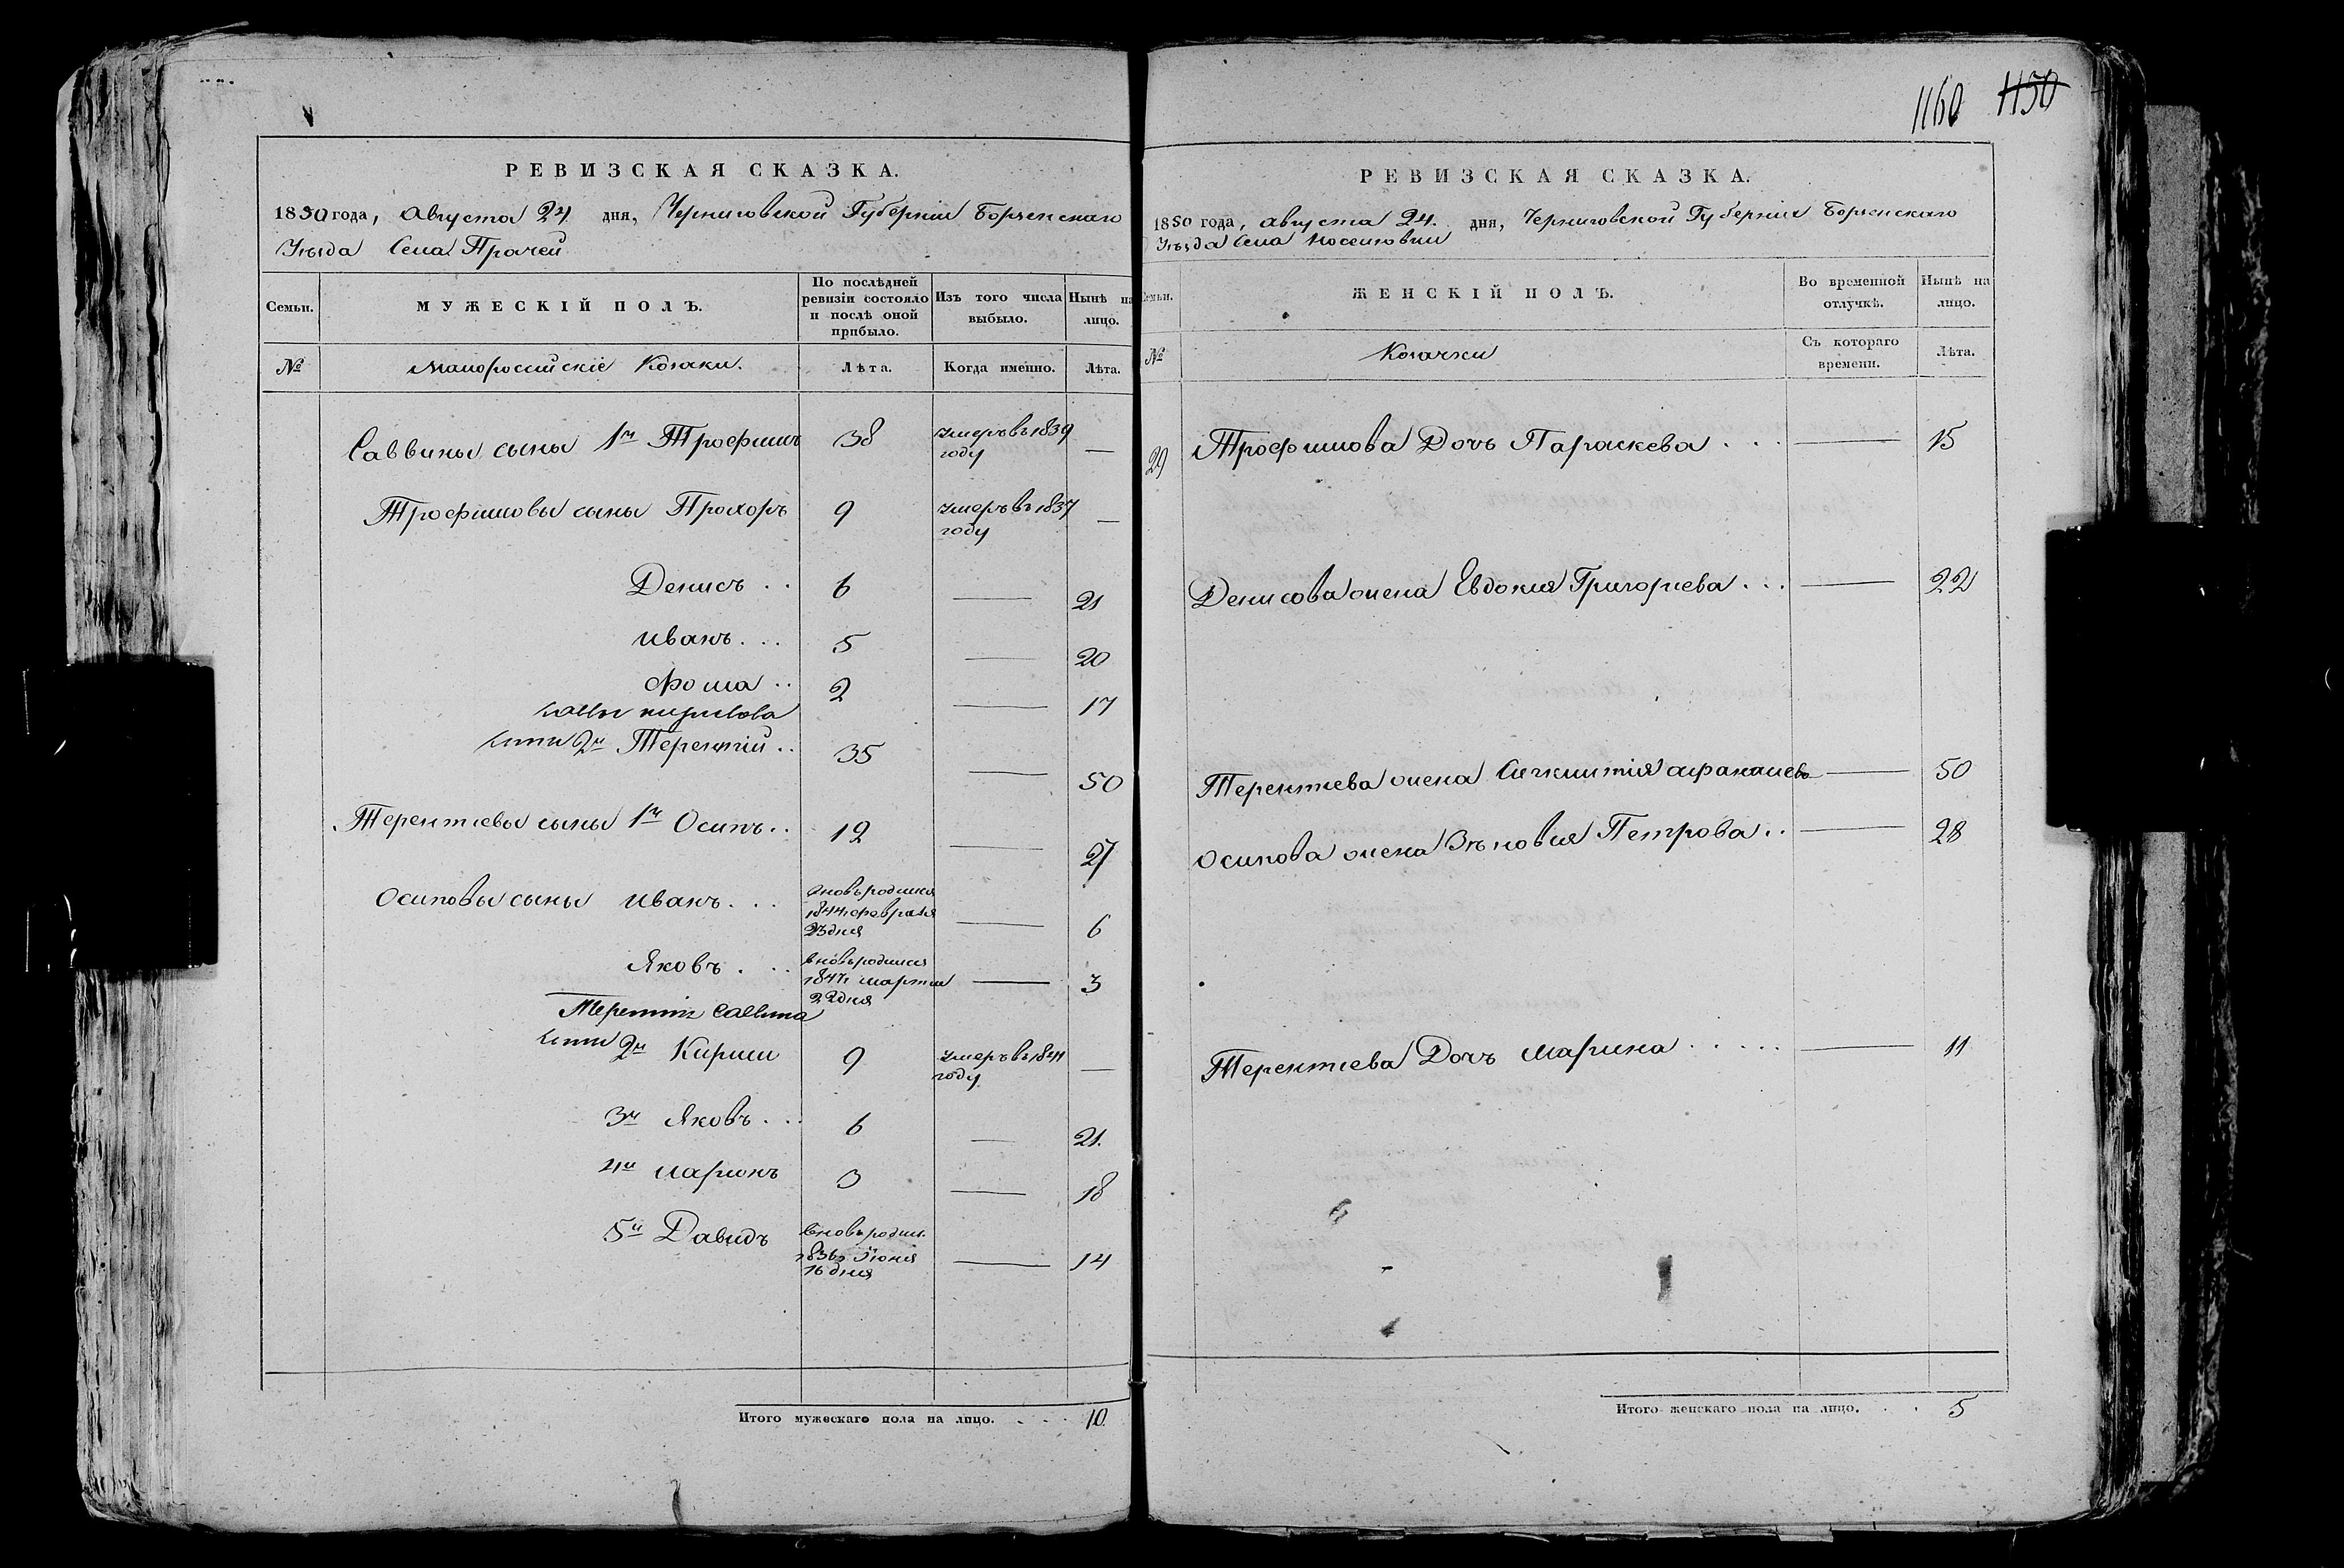 РЕВИЗСКАЯ СКАЗКА.
1850 года, августа 24 дня, Черниговской Губернии Борзенскаго
Уѣзда Села Прачей
Семьи.
МУЖЕСКІЙ ПОЛЪ.
По послѣдней ревизіи состояло и послѣ оной прибыло.
Изъ того числа выбыло.
Нынѣ на лицо.
№
Малороссійскіе Козаки.
Лѣта.
Когда именно.
Лѣта.
Саввины сыны 1й Трофимъ 38 умеръ въ 1839 —
году
Трофимовы сыны Прохоръ 9 умеръ въ 1837 —
году
Денисъ . . 6 — 21
Иванъ . . . 5 — 20
Фома . . 2 — 17
Саввы
2й Терентій . . 35 — 50
Терентіевы сыны 1й Осипъ . . 12 — 27
Осиповы сыны Иванъ . . . вновьродился
1844 февраля — 6
23 дня
Яковъ . . . вновьродился
1847 марта — 3
22 дня
Терентія Саввина
2й Кирил 9 умеръ въ 1841 —
году
3й Яковъ . . . 6 — 21.
4й Ларионъ 3 — 18
5й Давидъ вновьродил.
1836г Июня — 14
16 дня
Итого мужескаго пола на лицо. . . . 10.
1160 1150
РЕВИЗСКАЯ СКАЗКА.
1850 года, августа 24. дня, Черниговской Губерніи Борзенскаго
Уѣзда Села
Семьи.
ЖЕНСКІЙ ПОЛЪ.
Во временной отлучкѣ.
Нынѣ на лицо.
№
Козачки
Съ котораго времени.
Лѣта.
29 Трофимова Дочь Параскева . . . — 15
Денисова жена Евдокия Григориева . . . — 22
Терентиева жена — 50
Осипова жена Зѣновия Петрова . . — 28
Терентиева Дочь Марина . . . . . — 11
Итого женскаго пола на лицо. . . 5